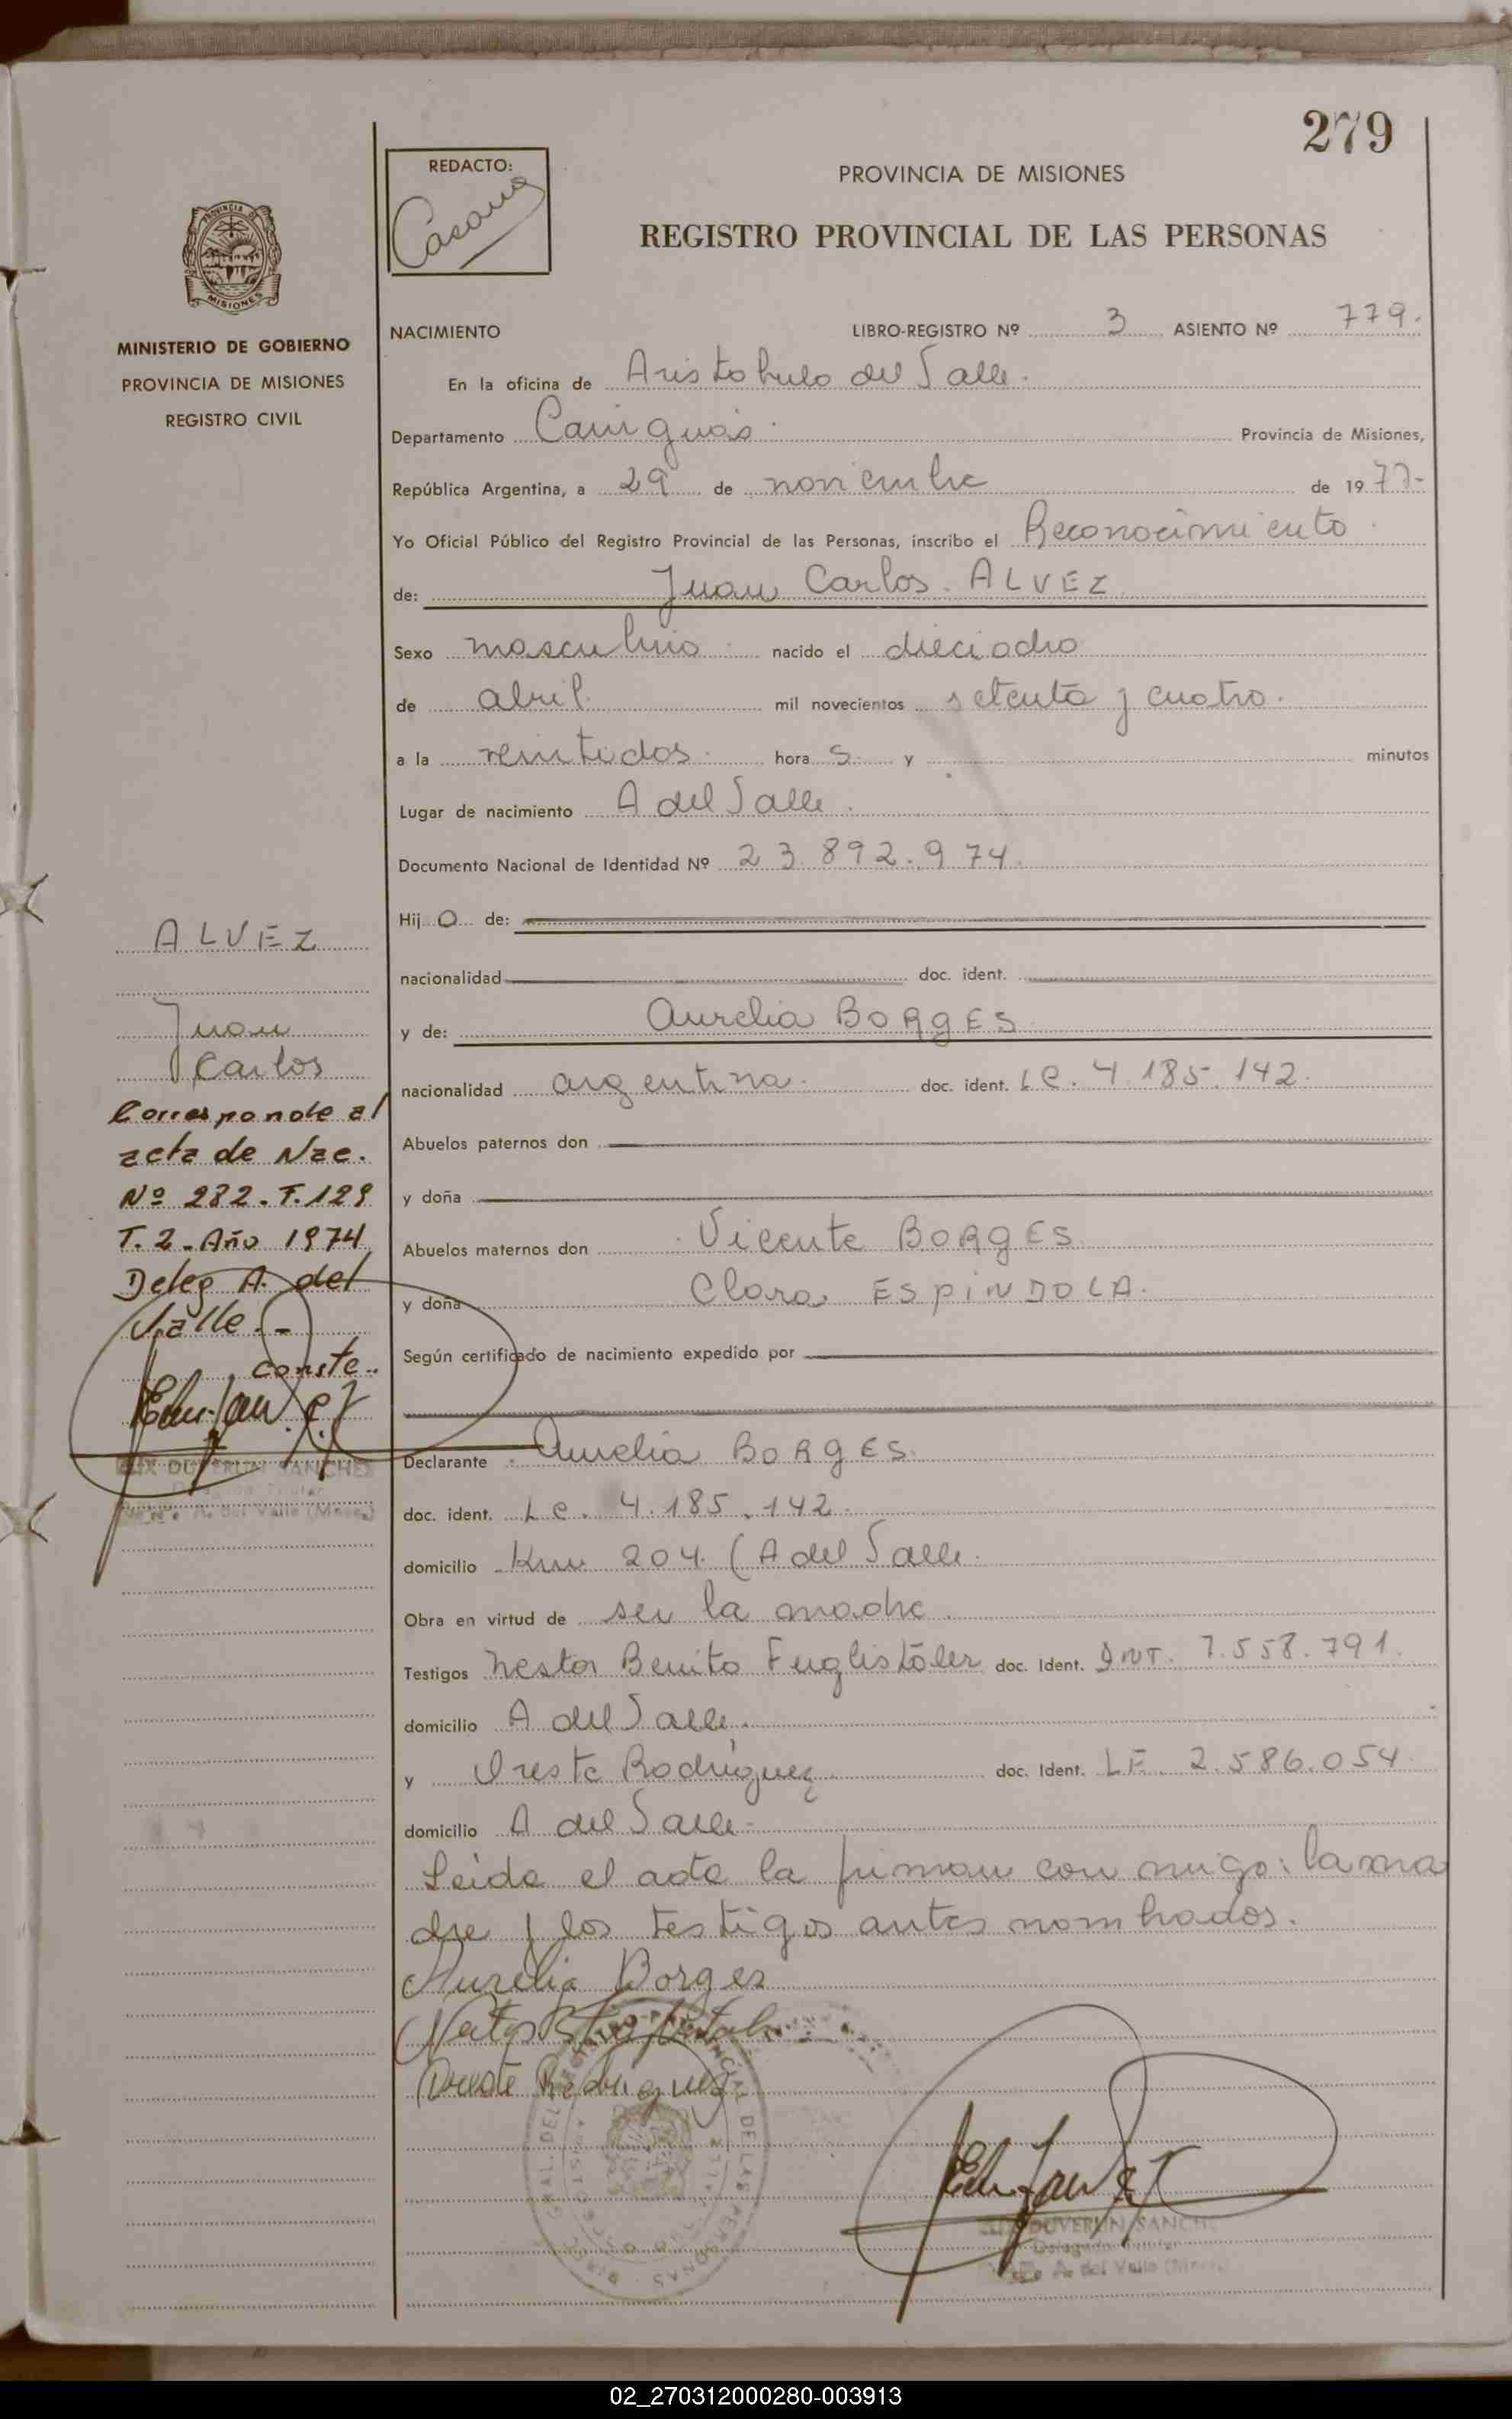 279
REDACTO:
PROVINCIA DE MISIONES
REGISTRO PROVINCIAL DE LAS PERSONAS
MISIONES
MINISTERIO DE GOBIERNO
PROVINCIA DE MISIONES
REGISTRO CIVIL
NACIMIENTO LIBRO-REGISTRO Nº 3 ASIENTO Nº 779.
En la oficina de Aristobulo del Valle.
Departamento Cainguás. Provincia de Misiones,
República Argentina, a 29 de noviembre de 1977-
Yo Oficial Público del Registro Provincial de las Personas, inscribo el Reconocimiento.
de: Juan Carlos. ALVEZ
Sexo masculino. nacido el dieciocho
de abril. mil novecientos setenta y cuatro.
a la veintidos. hora s. y minutos
Lugar de nacimiento A del Valle.
Documento Nacional de Identidad Nº 23.892.974.
Hij o de:
nacionalidad doc. ident.
y de: Aurelia BORgES
nacionalidad argentina. doc. ident. LC. 4.185.142.
Abuelos paternos don
y doña
Abuelos maternos don Vicente BORgES
y doña Clara ESPiNDOLA.
Según certificado de nacimiento expedido por
Declarante Aurelia BORgES.
doc. ident. Lc. 4.185.142.
domicilio Km 204. (A del Valle.
Obra en virtud de ser la madre.
Testigos Nestor Benito Fuglistáler doc. Ident. DNI. 7.558.791.
domicilio A del Valle.
y Oreste Rodríguez doc. Ident. LE. 2.586.054.
domicilio A del Valle-
Leida el acta la firman conmigo: la ma
dre y los testigos antes nombrados.
Aurelia Borges
Oreste Rodriguez
ALVEZ
Juan
Carlos
Corresponde al
acta de Nac.
Nº 282-F.129
T.2-Año 1974
Deleg A. del
Valle.-
conste..
DUVERLIN SANCHEZ
A. del Valle (Mnes.)
DUVERLIN SANCH
Delegado Titular
A. del Valle (Mnes.)
02_270312000280-003913